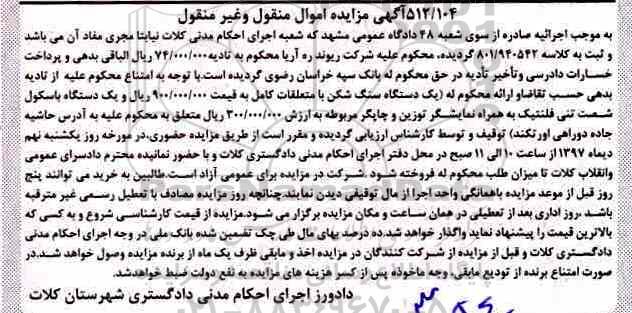 ۵۱۲/۱۰۴آگهی مزایده اموال منقول وغیر منقول
به موجب اجرائیه صادره از سوی شعبه ۴۸ دادگاه عمومی مشهد که شعبه اجرای احکام مدنی کلات نیابتا مجری مفاد آن می باشد
و ثبت به کلاسه ۸۰۱/۹۴۰۵۴۲ گردیده، محکوم علیه شرکت ریوند ره آریا محکوم به تادیه ۷۴/۰۰۰/۰۰۰ ریال الباقی بدهی و پرداخت
خسارات دادرسی وتأخیر تأدیه در حق محکوم له بانک سپه خراسان رضوی گردیده است.با توجه به امتناع محکوم علیه از تادیه
بدهی حسب تقاضاو ارائه محکوم له (یک دستگاه سنگ شکن با متعلقات کامل به قیمت ۹۰۰/۰۰۰/۰۰۰ ریال و یک دستگاه باسکول
شصت تنی فلنتیک به همراه نمایشگر توزین و چاپگر مربوطه به ارزش ۳۰۰/۰۰۰/۰۰۰ ریال متعلق به محکوم علیه به آدرس حاشیه
جاده دوراهی اورتکند) توقیف و توسط کارشناس ارزیابی گردیده و مقرر است از طریق مزایده حضوری،در مورخه روز یکشنبه نهم
دیماه ۱۳۹۷از ساعت ۱۰ الی ۱۱ صبح در محل دفتر اجرای احکام مدنی دادگستری کلات و با حضور نماینده محترم دادسرای عمومی
وانقلاب کلات تا میزان طلب محکوم له فروخته شود .شرکت در مزایده برای عمومی آزاد است.طالبین به خرید می توانند پنج
روز قبل از موعد مزایده باهمانگی واحد اجرا از مال توقیفی دیدن نمایند.چنانچه روز مزایده مصادف با تعطیل رسمی غیر مترقبه
باشد ،روز اداری بعد از تعطیلی در همان ساعت و مکان مزایده برگزار می شود.مزایده از قیمت کارشناسی شروع و به کسی که
بالاترین قیمت را پیشنهاد نماید واگذار خواهد شد.ده درصد بهای مال طی چک تضمین شده بانک ملی در وجه اجرای احکام مدنی
دادگستری کلات و قبل از مزایده از شرکت کنندگان در مزایده اخذ و مابقی ظرف یک ماه از برنده مزایده وصول خواهد شد.در
صورت امتناع برنده از تودیع مابقی، وجه ماخوذه پس از کسر هزینه های مزایده به نفع دولت ضبط خواهدشد.
دادورز اجرای احکام مدنی دادگستری شهرستان کلات